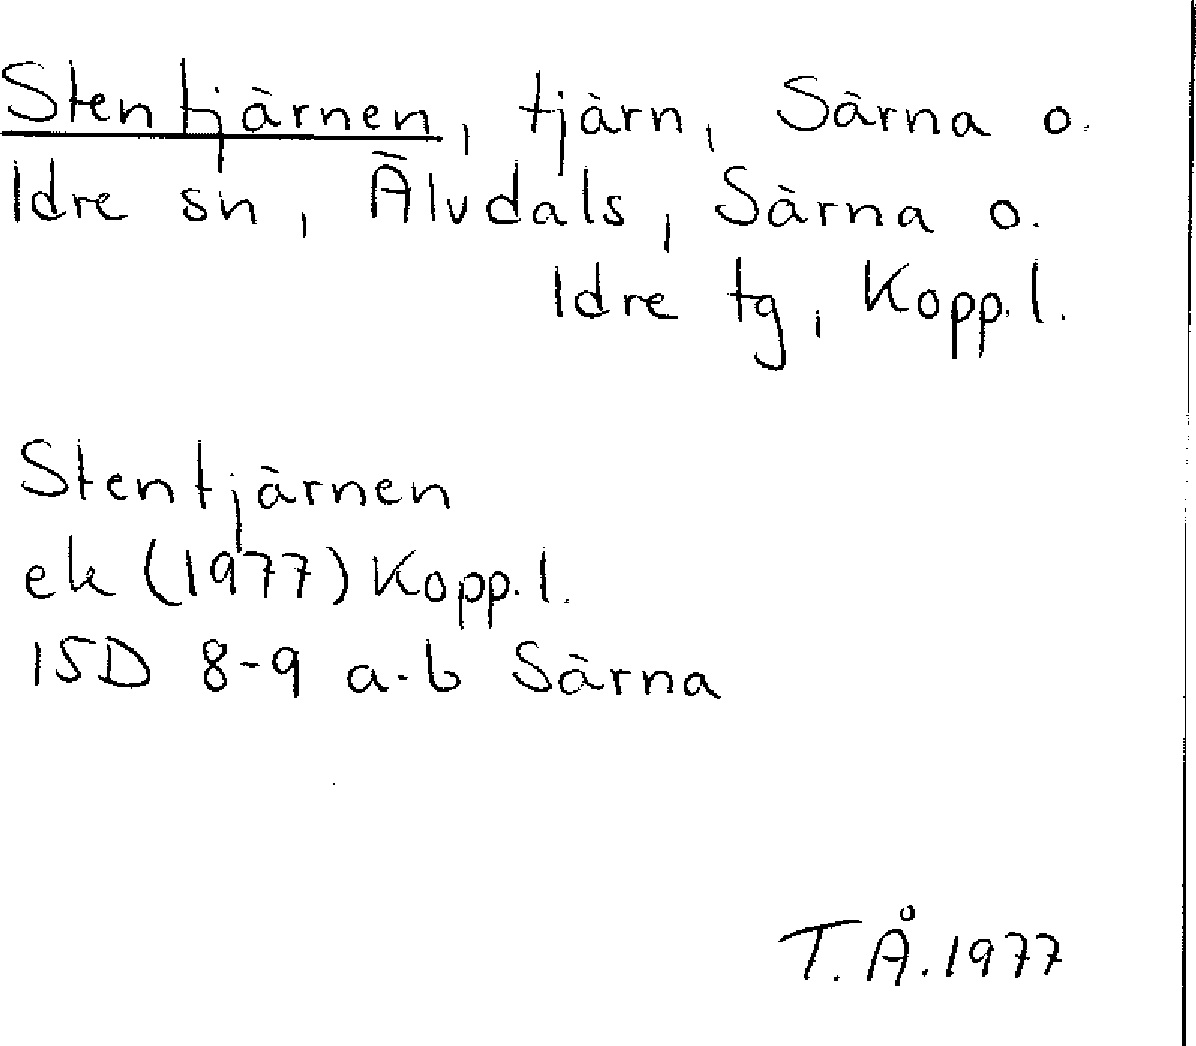 Stentjärnen, tjärn, Särna o.
Idre sn, Älvdals, Särna o.
Idre tg, Kopp.l.
Stentjärnen
ek (1977) Kopp.l.
15D 8-9 a-b Särna
T.Å.1977